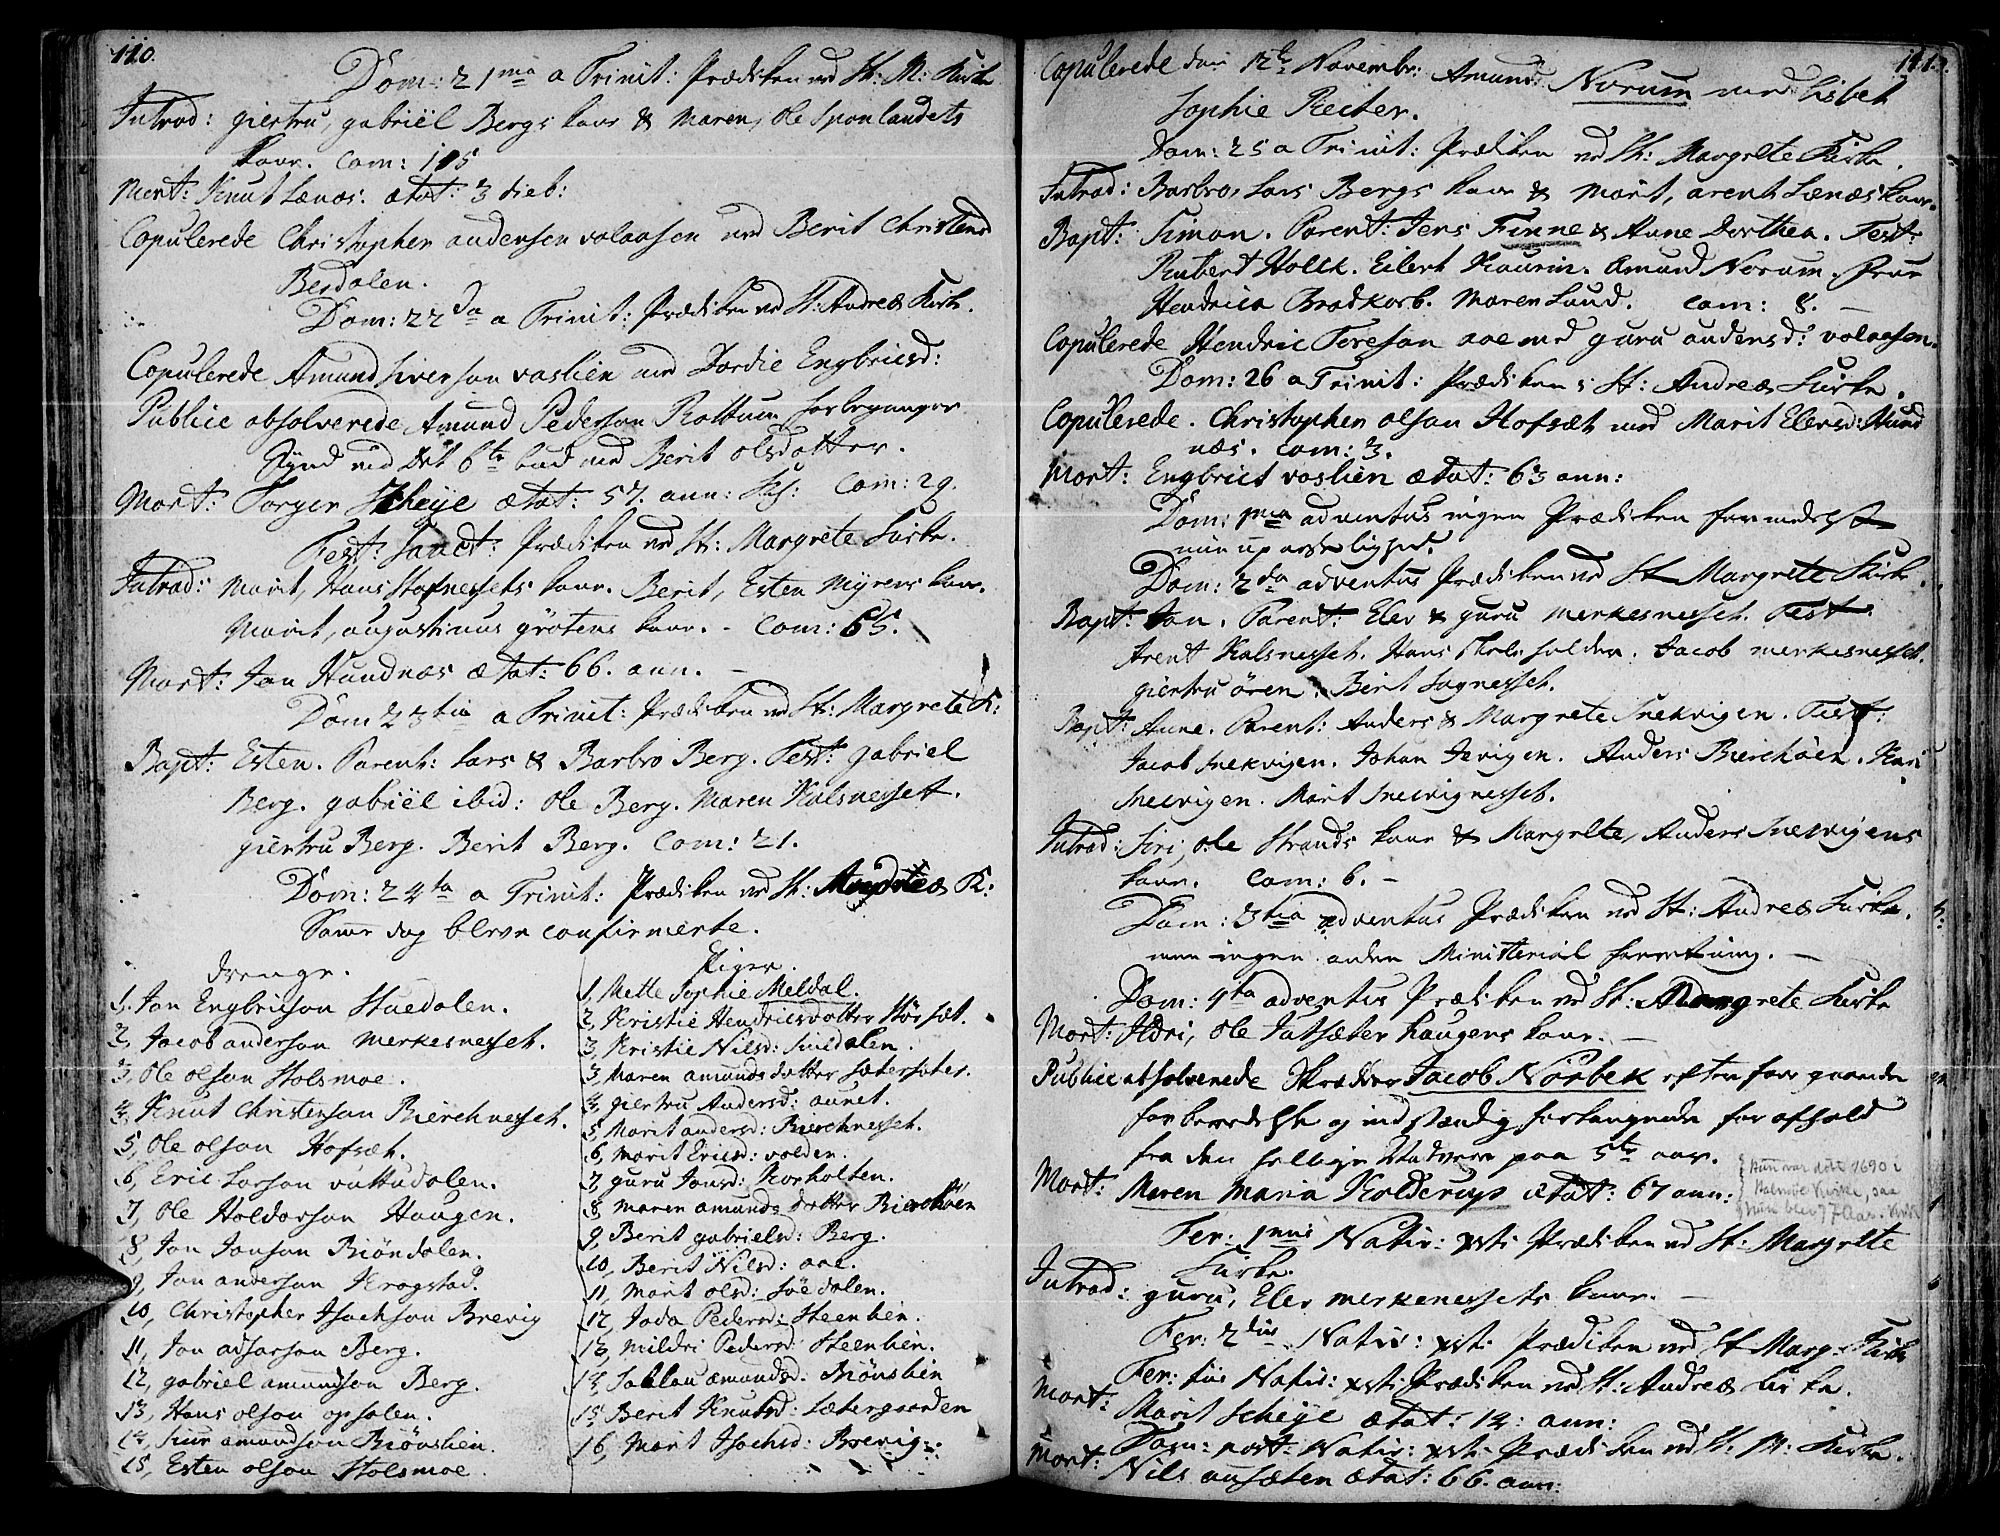 110.
Dom: 21ma a Trinit: Prædiken ved St: M: Kirke
Introd: giertru, gabriël Bergs kone & Maren, Ole Sponlandets
kone. Com: 105
Mort: Knut Lænæs. ætat: 3 dieb:
Copulerede Christopher andersen valaasen med Berit Christensd
Berdalen.
Dom: 22da a Trinit: Prædiken ved St: Andreæ Kirke.
Copulerede Amund Iversøn vaslien med Dordie Engbricsd:
Publice absolverede Amund Pedersøn Rottum for begangen
Synd mod det 6te bud med Berit olsdotter.
Mort: Torger Scheye ætat: 57. ann: Com: 29.
Fest: Sanct: Prædiken ved St: Margrete Kirke.
Introd: Marit, Hans Stafnessets kone. Berit, Esten Myrens kone.
Marit, augustinus grötens kone. - Com: 65.
Mort: Jon Hundnæs ætat: 66. ann. -
Dom 23tia a Trinit: Prædiken ved St: Margrete K:
Bapt: Esten. Parent: Lars & Barbro Berg. Test: gabriel
Berg. gabriël ibid: Ole Berg. Maren Kalsnesset.
giertru Berg. Berit Berg. Com: 21.
Dom: 24ta a Trinit: Prædiken ved St: Andreæ K:
Samme dag bleve confirmerte.
drenge.
1, Jon Engbricson Stuedalen.
2, Jacob anderson Merkesnesset.
3, Ole olson Holsmoe.
4, Knut Christenson Bierchnesset.
5, Ole olson Hofsæt.
6, Eric Larson vattudalen.
7, Ole Haldorson Haugen.
8, Jon Jonson Biöndalen.
9, Jon anderson Krogstad.
10, Christopher Isachson Brevig
11, Jon Berg.
12, gabriel amundson Berg.
13, Hans olson opsalen.
14, amundson Biönslien.
15, Esten olson Holsmoe.
Piger.
1, Mette Sophie Meldal.
2, Kristie Hendricsdotter Hörsæt.
3, Kristie Nilsd: Suedalen.
3, Maren amunds dotter sæterseter.
4, giertru Andersd: aunet.
5, Marit andersd: Bierchnesset.
6, Marit Ericsd: volden.
7, guru Jonsd: Korholten.
8, Maren amunds dotter Bierchöen
9, Berit gabrielsd: Berg.
10, Berit Nilsd: aae.
11, Marit olsd: Söedalen.
12, Joda Pedersd: Steenlien.
13, Mildri Pedersd: Steenlien.
14, amundsd: Biönslien
15, Berit Knutsd: Sætergaarden
16, Marit Isachsd: Brevig.
111.
Copulerede den 12te Novembr: Amund Norum med Lisbet
Sophie Reiter.
Dom: 25 a Trinit: Prædiken ved St: Margrete Kirke.
Introd: Barbro, Lars Bergs kone & Marit, arent Lænæs kone.
Bapt: Simon. Parent: Jens Finne & Anne Dorthea. Test:
Rubert Holck. Eilert Kaurin. Amund Norum.
Hendrica Brodkorb. Maren Lund. Com: 8. -
Copulerede Hendric Toreson aae med guru andersd: valaasen.
Dom: 26 a Trinit: Prædiken i St: Andreæ Kirke.
Copulerede. Christopher olson Hofsæt med Marit Elersd: Hund
næs. Com: 3.
Mort: Engbrict vaslien ætat: 63 ann:
Dom: 1ma adventus ingen Prædiken formedelst
min upasselighed.
Dom: 2da adventus Prædiken ved St Margrete Kirke.
Bapt: Jon. Parent: Eler & guru merkesnesset. Test:
Arent Kalsnesset. Hans Jacob merkesnesset.
giertru ören. Berit Sognesset.
Bapt: Anne. Parent: Anders & Margrete Snekvigen. Test:
Jacob Snekvigen. Johan Jevigen. Anders Bierchöen. Kari
Snekvigen. Marit Snevignesset.
Introd: Siri, ole Strands kone & Margrete, Anders Snekvigens
kone. Com: 6. -
Dom: 3tia adventus Prædiken ved St: Andreæ Kirke.
men ingen anden Ministerial forretning. -
Dom: 4ta adventus Prædiken ved St: Margrete Kirke
Mort: Ildri, Ole Haugens kone. -
Publice absolverede Jacob Nörbek efter foregaaende
forberedelse og for afhold
fra den hellige Nadvere paa 5te aar.
Mort: Maren Maria Kolderup ætat: 67 ann:
Hun var döbt 1690 i
Kirke, saa
hun blev 77 Aar.
Fer: 1mæ Nativ: xsti Prædiken ved St: Margrete
Kirke.
Introd: guru, Eler merkenessets kone. -
Fer: 2dæ Nativ: xsti Prædiken ved St Marg: Kirke
Fer: tiæ Nativ: xsti Prædiken ved St: Andreæ Kirke.
Mort: Marit Scheye ætat: 14: ann:
Dom: post Nativ: xsti Prædiken ved St: M: Kirke.
Mort: Nils ansæten ætat: 66. ann: